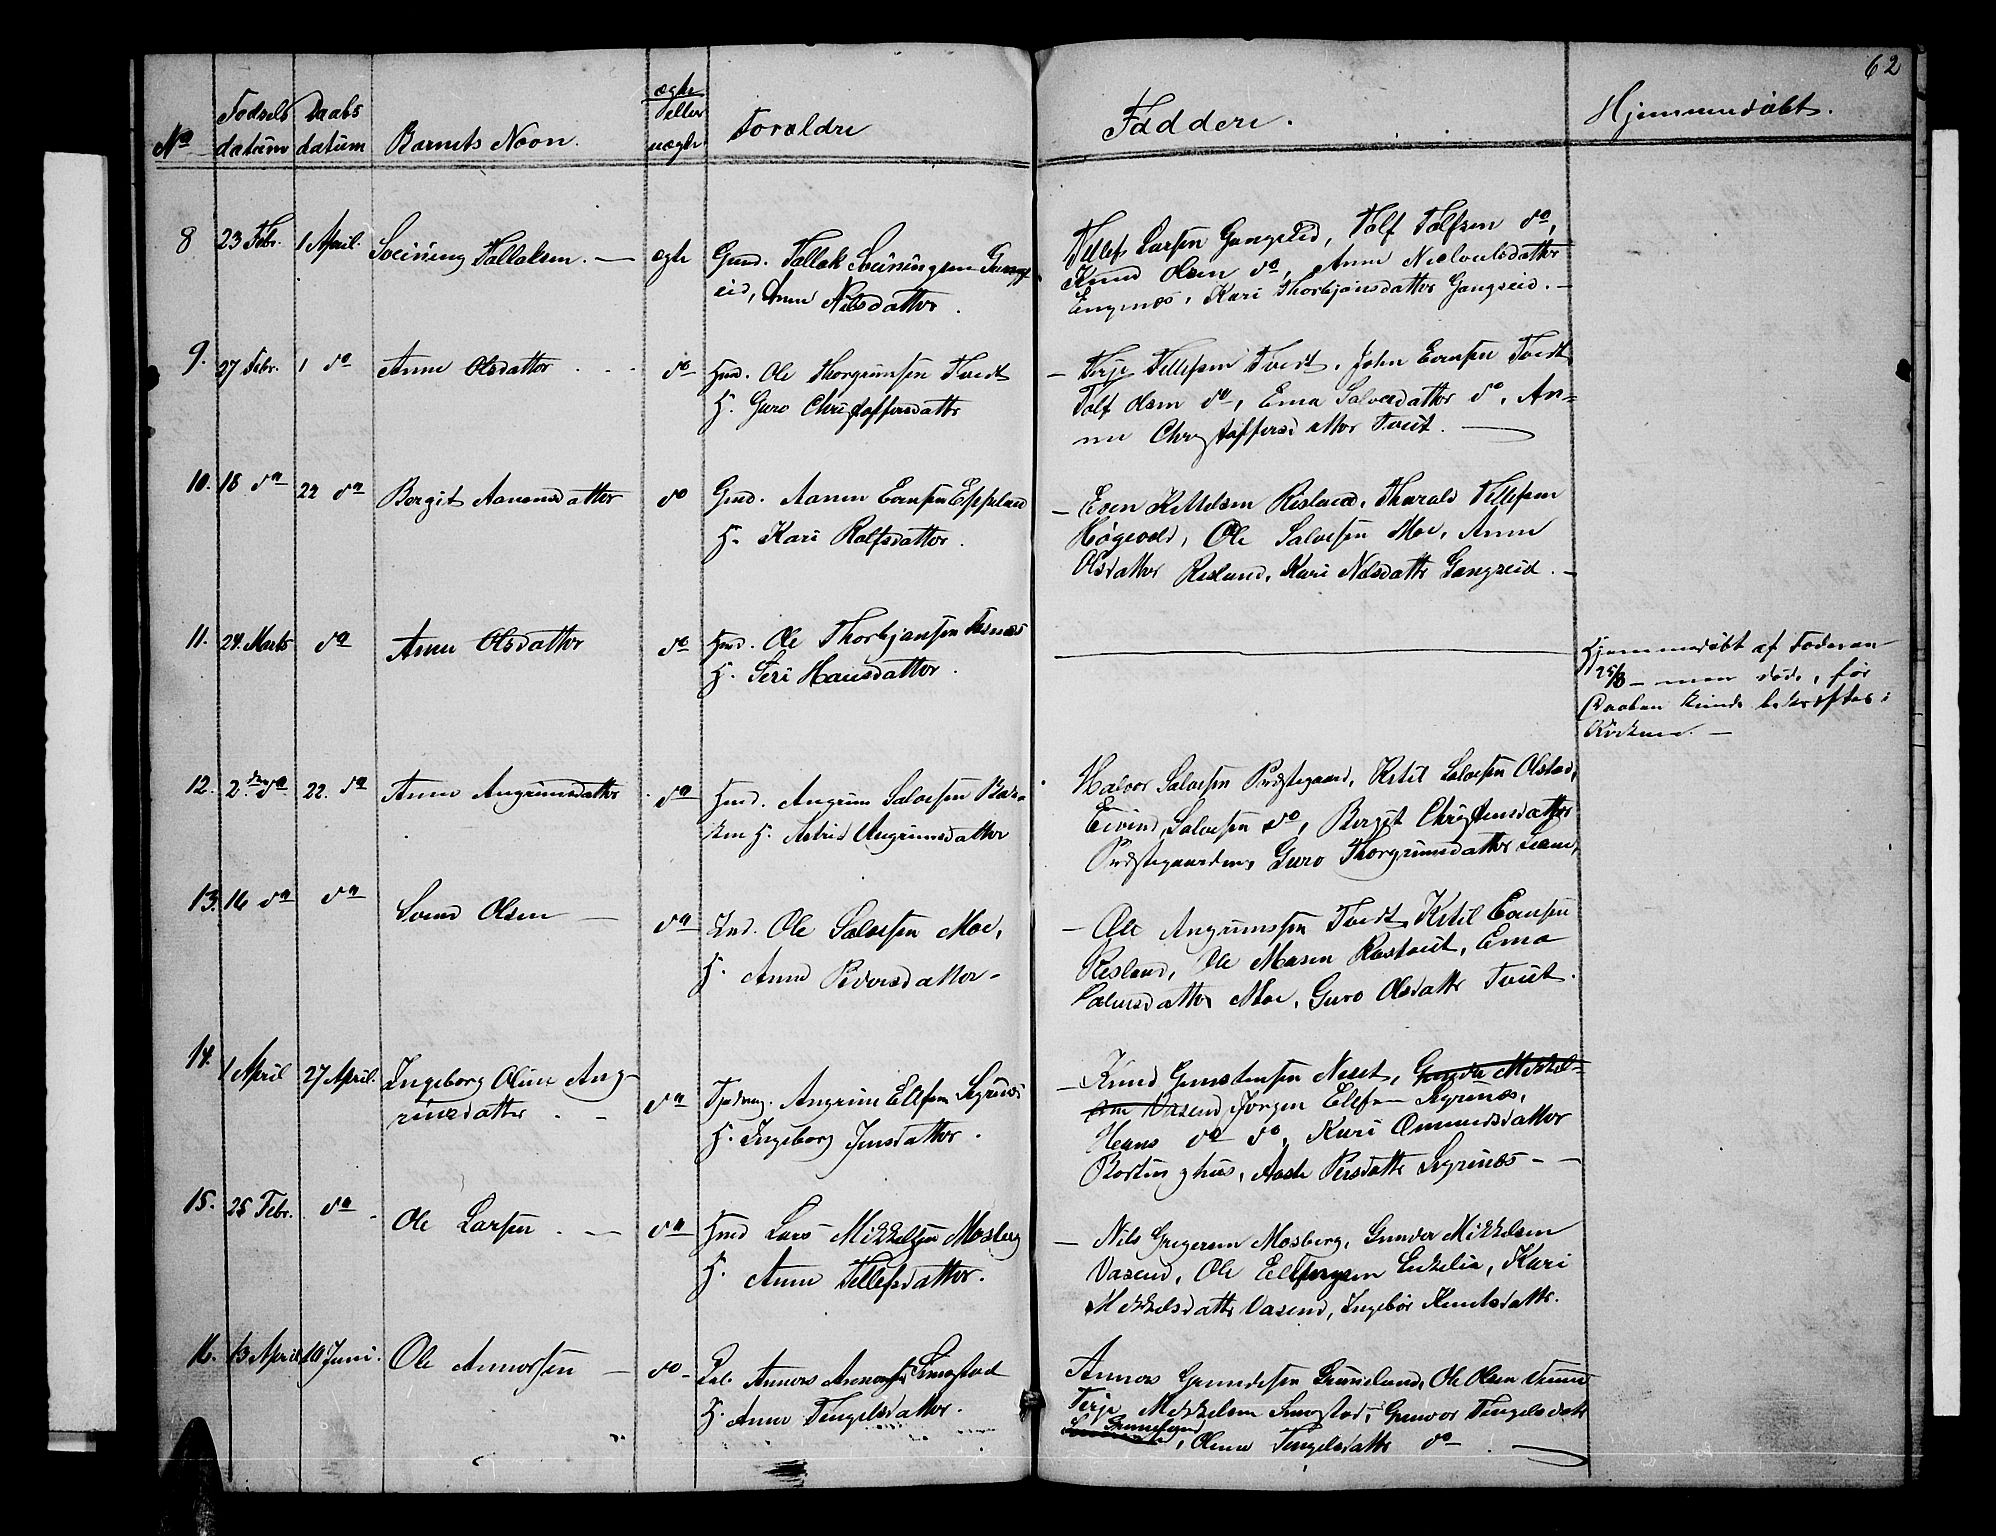 62
No
Fødsels
datum
Daabs
datum
Barnets Navn.
ægte
eller
uægte
Foreldre
Faddere.
Hjemmedøbt.
8 23 Febr. 1 April. Sveinung Tallaksen. — ægte Gmd. Tallak Sveinungsen Gangs
eid, Anne Nilsdatter.
Tellef Larsen Gangseid, Tolf Tolfsen do,
Knud Olsen do, Anne
Engenes, Kari Thorbjønsdatter Gangseid. —
9. 27 Febr. 1 do Anne Olsdatter . . . do Gmd. Ole Thorgrimsen Tvedt
H. Guro Christoffersdatter
— Terje Tellefsen Tvedt, John Evensen Tvedt
Tolf Olsen do, Ema Salvesdatter do, An=
ne Christoffersdatter Tveit. —
10. 18 do 22 do Bergit Aanensdatter do Gmd. Aanen Evensen Eppeland
H. Kari Rolfsdatter.
— Even Kittelsen Risland, Tharald Tellefsen
Høgevold, Ole Salvesen Moe, Anne
Olsdatter Risland, Kari Nilsdatter Gangseid. —
11. 24. Marts do Anne Olsdatter do Gmd. Ole Thorbjønsen
H. Siri Hansdatter.
Hjemmedøbt af Faderen
25/3 — men døde, før
Daaben kunde bekræftes i
Kirken. —
12. 2den do 22. do Anne Angrimsdatter . do Gmd. Angrim Salvesen Bak-
ken H. Astrid Angrimsdatter
Halvor Salvesen Prestegaard, Ketil Salvesen Olstad,
Eivind Salvesen do, Bergit Christensdatter
Prestegaarden, Guro Thorgrimsdatter
13. 16 do do Svend Olsen — do Ind. Ole Salvesen Moe,
H. Anne Pedersdatter —
— Ole Angrimssen Tvedt, Ketil Evensen
Risland, Ole Masen Rostveit, Ema
Salvesdatter Moe, Guro Olsdatter Tveit.
14. 1 April 27 April. Ingeborg Oline Ang-
rimsdatter . — do Angrim Ellefsen Igrenes
H. Ingeborg Jensdatter.
— Knud Gunstensen Neset, Gunder Mikkel=
sen Vasend, Jørgen Ellefsen Igrenes,
Hans do do, Kari Omundsdatter
Bortinghus, Aaste Persdatter Igrenes — —
15. 25 Febr. do — Ole Larsen . — do Gmd Lars Mikkelsen Mosberg
H. Anne Tellefsdatter.
— Nils Gregersen Mosberg, Gunder Mikkelsen
Vasend, Ole Lukelia, Kari
Mikkelsdatter Vasend, Ingebor Knutsdatter.
16. 13 April 10 Juni. Ole Annorsen — do — Annors Annorsen Simostad
H. Anne Tengelsdatter.
Annors Gundersen Grimeland, Ole Olsen
Terje Mikkelsen Simostad, Gunvor Tengelsdatter
Grimeland, Oline Tengelsdatter do —